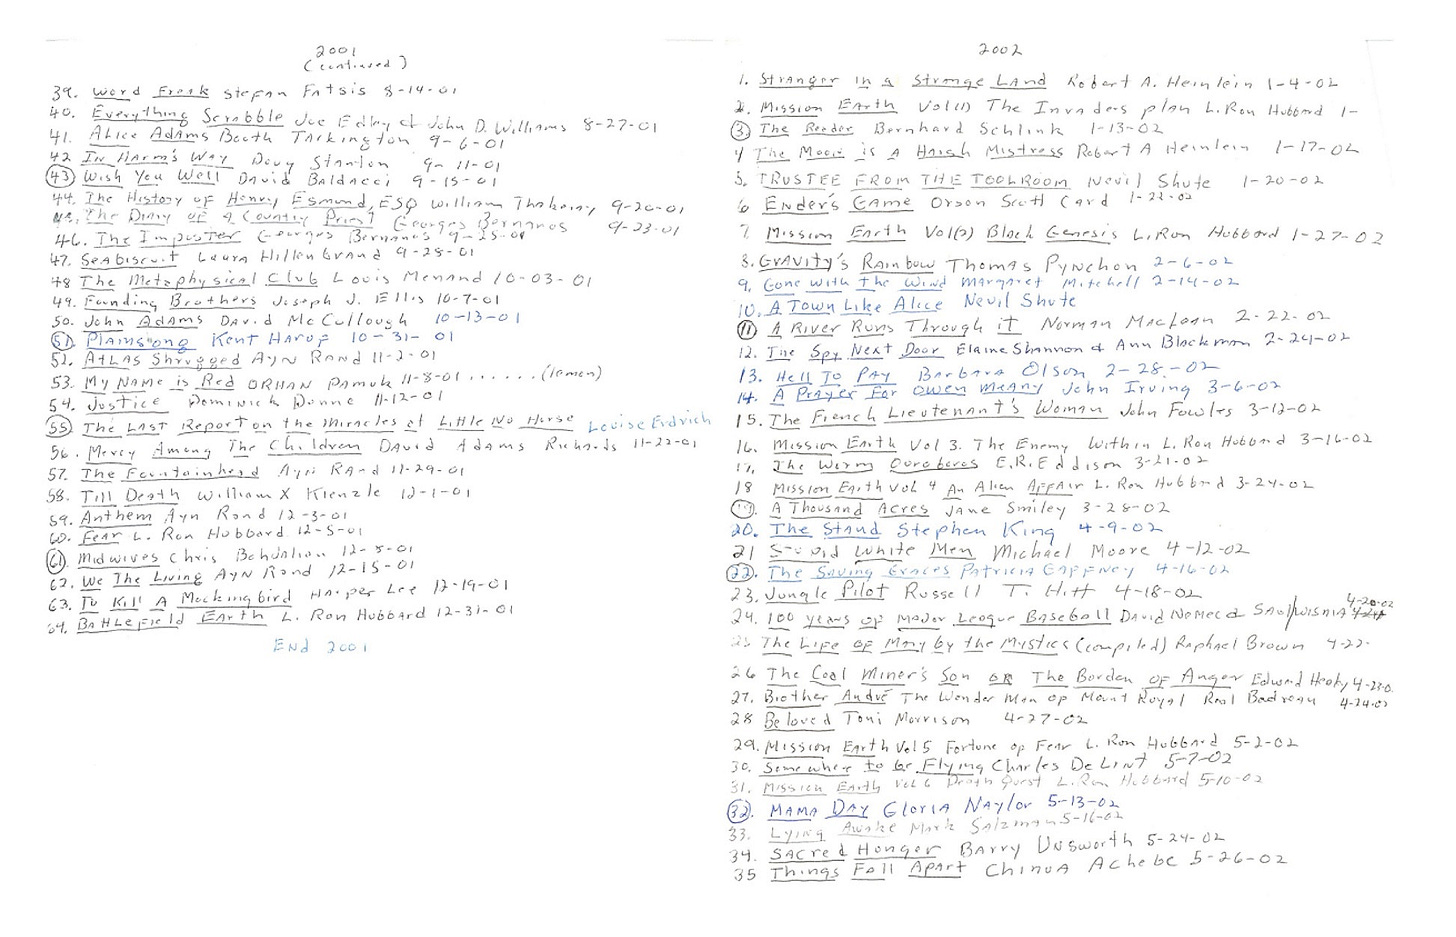 2001
(continued)
39. Word Freak Stefan Fatsis 8-14-01
40. Everything Scrabble Joe Edley & John D. Williams 8-27-01
41. Alice Adams Booth Tarkington 9-6-01
42 In Harm's Way Doug Stanton 9-11-01
43 Wish You Well David Baldacci 9-15-01
44. The History of Henry Esmond, ESQ William Thakeray 9-20-01
45. The Diary of a Country Priest Georges Bernanos 9-23-01
46. The Imposter Georges Bernanos 9-25-01
47. Seabiscuit Laura Hillenbrand 9-28-01
48 The Metaphysical Club Louis Menand 10-03-01
49. Founding Brothers Joseph J. Ellis 10-7-01
50. John Adams David McCullough 10-13-01
51. Plainsong Kent Haruf 10-31-01
52. Atlas Shrugged Ayn Rand 11-2-01
53. My Name is Red Orhan Pamuk 11-8-01 ...... (lemon)
54. Justice Dominick Dunne 11-12-01
55. The Last Report on the Miracles at Little No Horse Louise Erdrich
56. Mercy Among The Children David Adams Richards 11-22-01
57. The Fountainhead Ayn Rand 11-29-01
58. Till Death William X Kienzle 12-1-01
59. Anthem Ayn Rand 12-3-01
60. Fear L. Ron Hubbard 12-5-01
61. Midwives Chris Bohjalian 12-8-01
62. We The Living Ayn Rand 12-15-01
63. To Kill A Mockingbird Harper Lee 12-19-01
64. Battlefield Earth L. Ron Hubbard 12-31-01
End 2001
2002
1. Stranger in a Strange Land Robert A. Heinlein 1-4-02
2. Mission Earth Vol(1) The Invaders plan L. Ron Hubbard 1-
3 The Reader Bernhard Schlink 1-13-02
4 The Moon is A Harsh Mistress Robert A Heinlein 1-17-02
5. TRUSTEE FROM THE TOOLROOM Nevil Shute 1-20-02
6 Ender's Game Orson Scott Card 1-22-02
7. Mission Earth Vol(2) Black Genesis L. Ron Hubbard 1-27-02
8. Gravity's Rainbow Thomas Pynchon 2-6-02
9. Gone with the Wind Margaret Mitchell 2-14-02
10. A Town Like Alice Nevil Shute
11 A River Runs Through it Norman Maclean 2-22-02
12. The Spy Next Door Elaine Shannon & Ann Blackman 2-24-02
13. Hell To Pay Barbara Olson 2-28-02
14. A Prayer For Owen Meany John Irving 3-6-02
15. The French Lieutenant's Woman John Fowles 3-12-02
16. Mission Earth Vol 3. The Enemy Within L. Ron Hubbard 3-16-02
17. The Worm Ouroboros E.R. Eddison 3-21-02
18 Mission Earth Vol 4 An Alien Affair L. Ron Hubbard 3-24-02
19. A Thousand Acres Jane Smiley 3-28-02
20. The Stand Stephen King 4-9-02
21 Stupid White Men Michael Moore 4-12-02
22. The Saving Graces Patricia Gaffney 4-16-02
23. Jungle Pilot Russell T. Hitt 4-18-02
24. 100 years of Major League Baseball David Nemec & Saul Wisnia 4-20-02
25 The Life of Mary by the Mystics (compiled) Raphael Brown 4-22-
26 The Coal Miner's Son or The Burden of Anger Edward Heaky 4-23-0
27. Brother André The Wonder Man of Mount Royal Real Badreau 4-24-02
28 Beloved Toni Morrison 4-27-02
29. Mission Earth Vol 5 Fortune of Fear L. Ron Hubbard 5-2-02
30. Somewhere to be Flying Charles De Lint 5-7-02
31. Mission Earth Vol 6 Death Quest L. Ron Hubbard 5-10-02
32. MAMA DAY Gloria Naylor 5-13-02
33. Lying Awake Mark Salzman 5-16-02
34. Sacred Hunger Barry Unsworth 5-24-02
35 Things Fall Apart Chinua Achebe 5-26-02